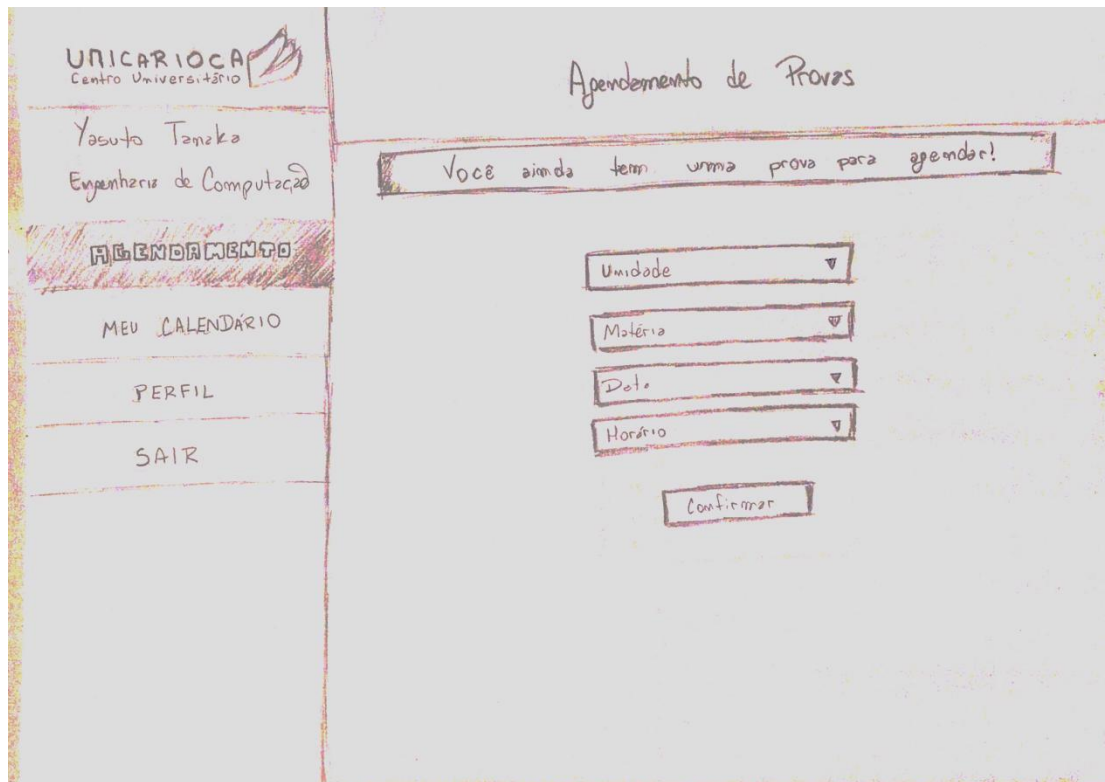 UNICARIOCA
Centro Universitário
Yasuto Tanaka
Engenharia de Computação
AGENDAMENTO
MEU CALENDÁRIO
PERFIL
SAIR
Agendamento de Provas
Você ainda tem uma prova para agendar!
Unidade
Matéria
Data
Horário
Confirmar